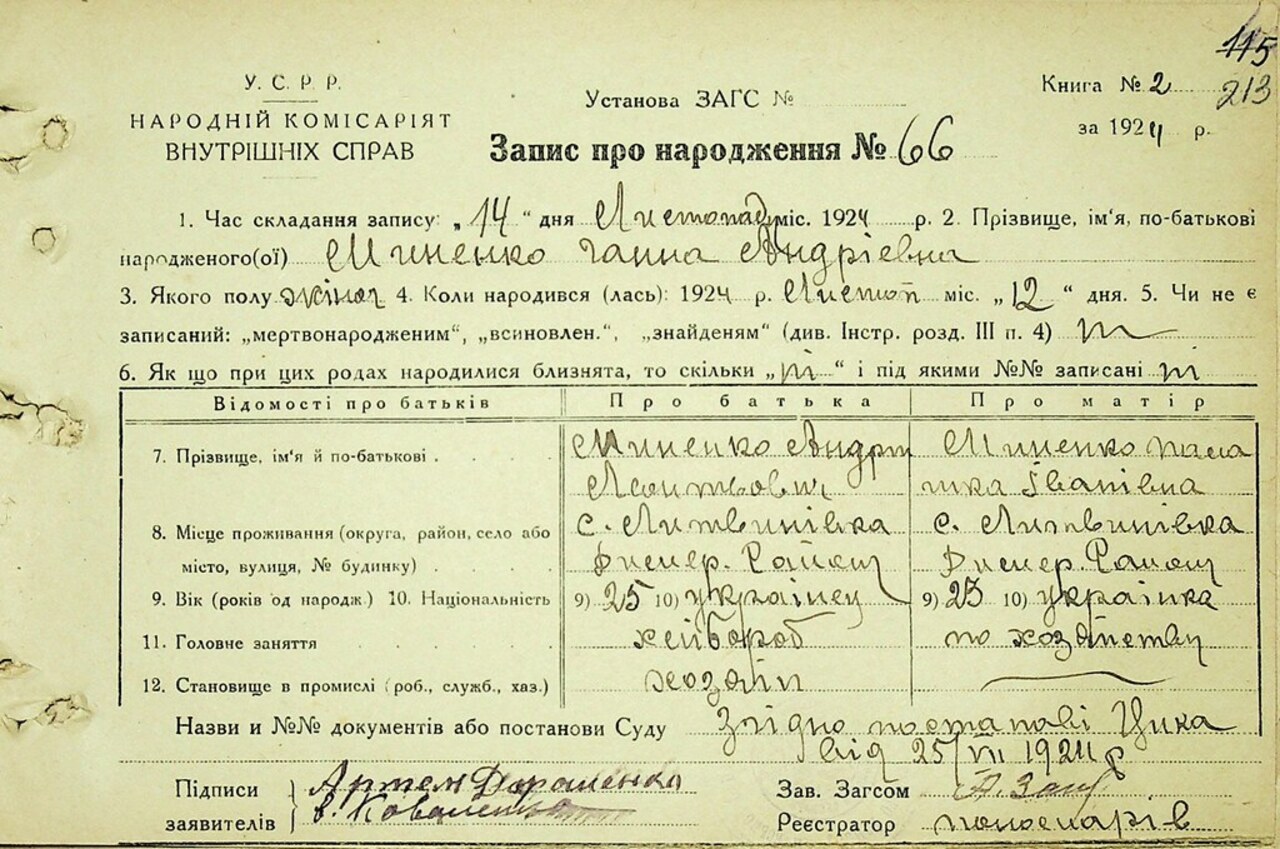 115
213
У. С. Р. Р.
НАРОДНІЙ КОМІСАРІЯТ
ВНУТРІШНІХ СПРАВ
Установа ЗАГС №
Книга № 2
за 1924 р.
Запис про народження № 66
1. Час складання запису: „14“ дня Листопад міс. 1924 р. 2. Прізвище, ім'я, по-батькові
народженого(ої) Миненко Ганна Андріевна
3. Якого полу жіноч 4. Коли народився (лась): 1924 р. Листоп міс. „12“ дня. 5. Чи не є
записаний: „мертвонародженим“, „всиновлен.“, „знайденям“ (див. Інстр. розд. III п. 4) ні
6. Як що при цих родах народилися близнята, то скільки „ні“ і під якими №№ записані ні
Відомості про батьків Про батька Про матір
7. Прізвище, ім'я й по-батькові . . . . Миненко Андрій Миненко
Івановна
8. Місце проживання (округа, район, село або с. Литвинівка с. Литвинівка
місто, вулиця, № будинку) . . . . Димер. Район Димер. Район
9. Вік (років од народж.) 10. Національність 9) 25 10) українец 9) 23 10) українка
11. Головне заняття . . . . хлібороб по хозяйству
12. Становище в промислі (роб., служб., хаз.) хозяїн
Назви и №№ документів або постанови Суду Згідно постанові Цика
від 25/VII 1924 р
Підписи Артем Дорошенко Зав. Загсом
заявителів Коваленко Реєстратор